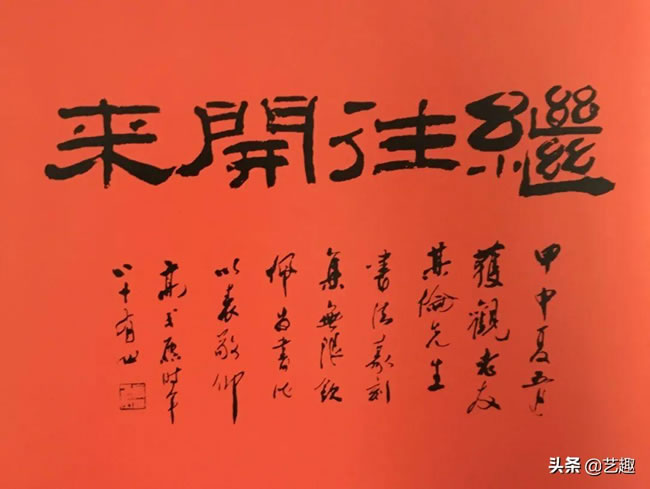 繼往開來
甲申夏五月
獲觀老友
其倫先生
書法篆刻
集無限欽
佩書此
以表敬仰
高式熊時年
八十有四
头条 @艺趣